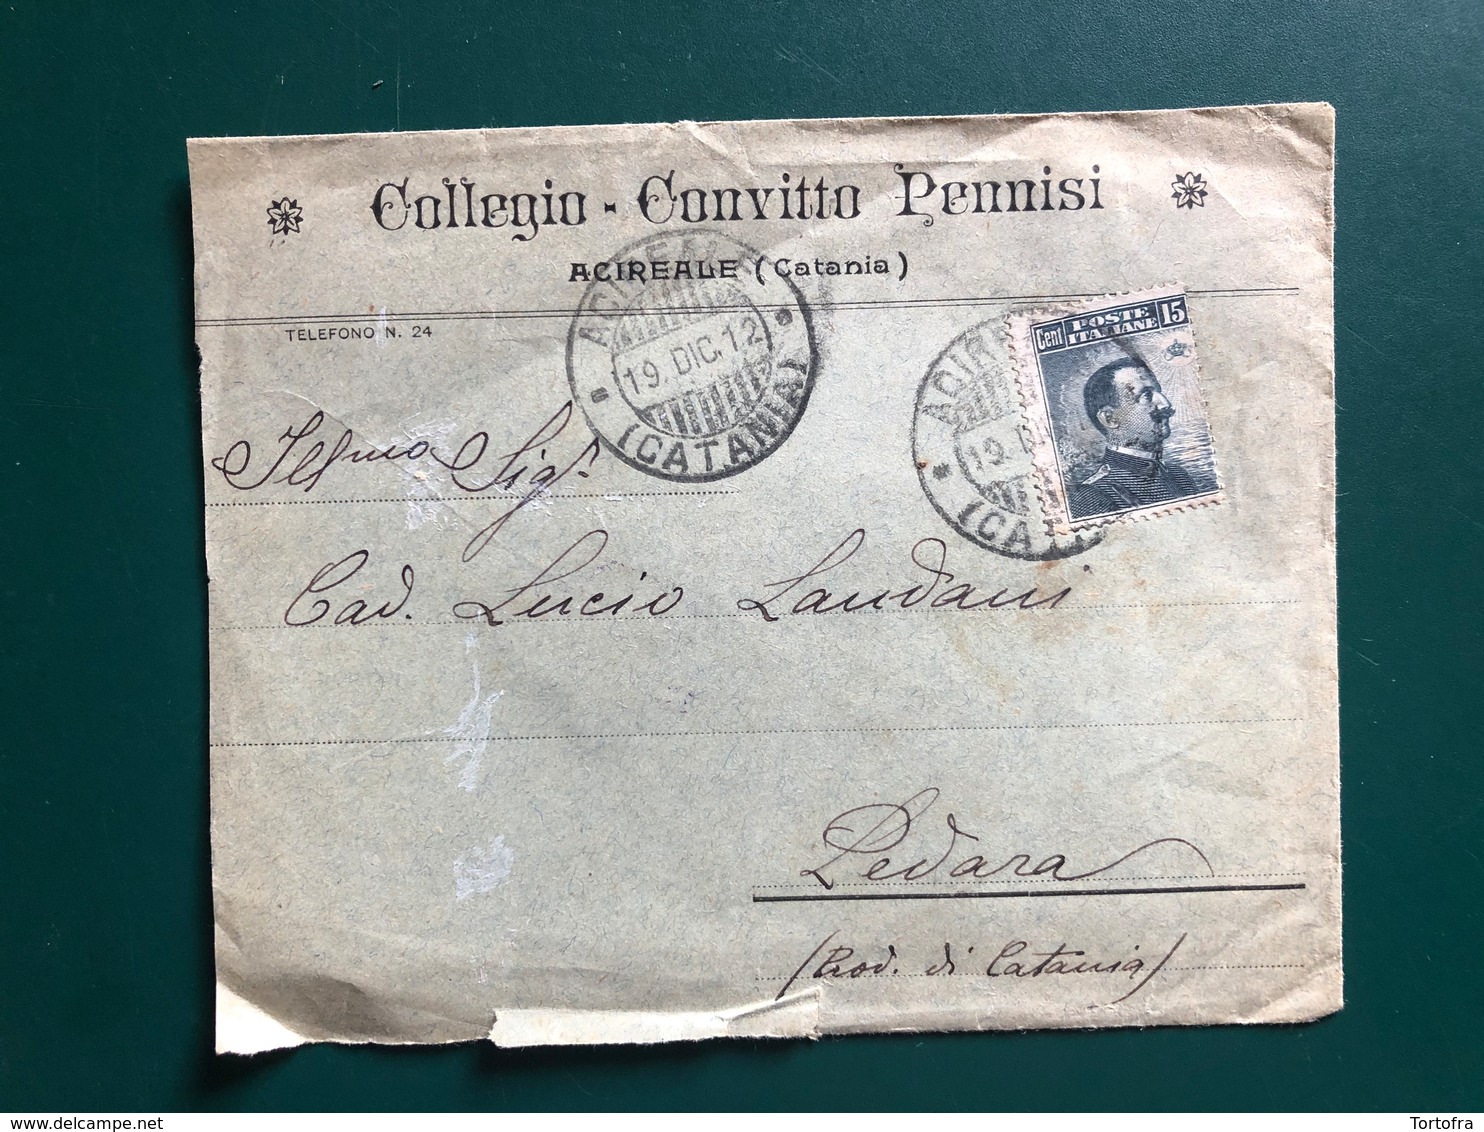 Collegio - Convitto Pennisi
ACIREALE (Catania)
TELEFONO N. 24
ACIREALE
19. DIC. 12
(CATANIA)
ACIR
19. D
(CATA
Cent POSTE ITALIANE 15
Illmo Sigr
Cav. Lucio Laudani
Pedara
(Prov. di Catania)
delcampe.net
Tortofra